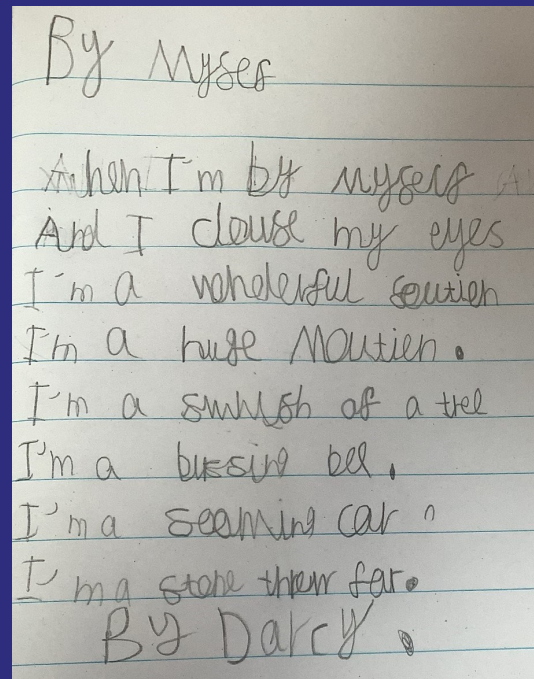 By Myses
When I'm by Myself
And I clouse my eyes
I'm a wonderful foutien
I'm a huge Moutien.
I'm a swhish of a tree
I'm a bussing bee.
I'm a seeming car
I'm a stone threw far.
By Darcy.